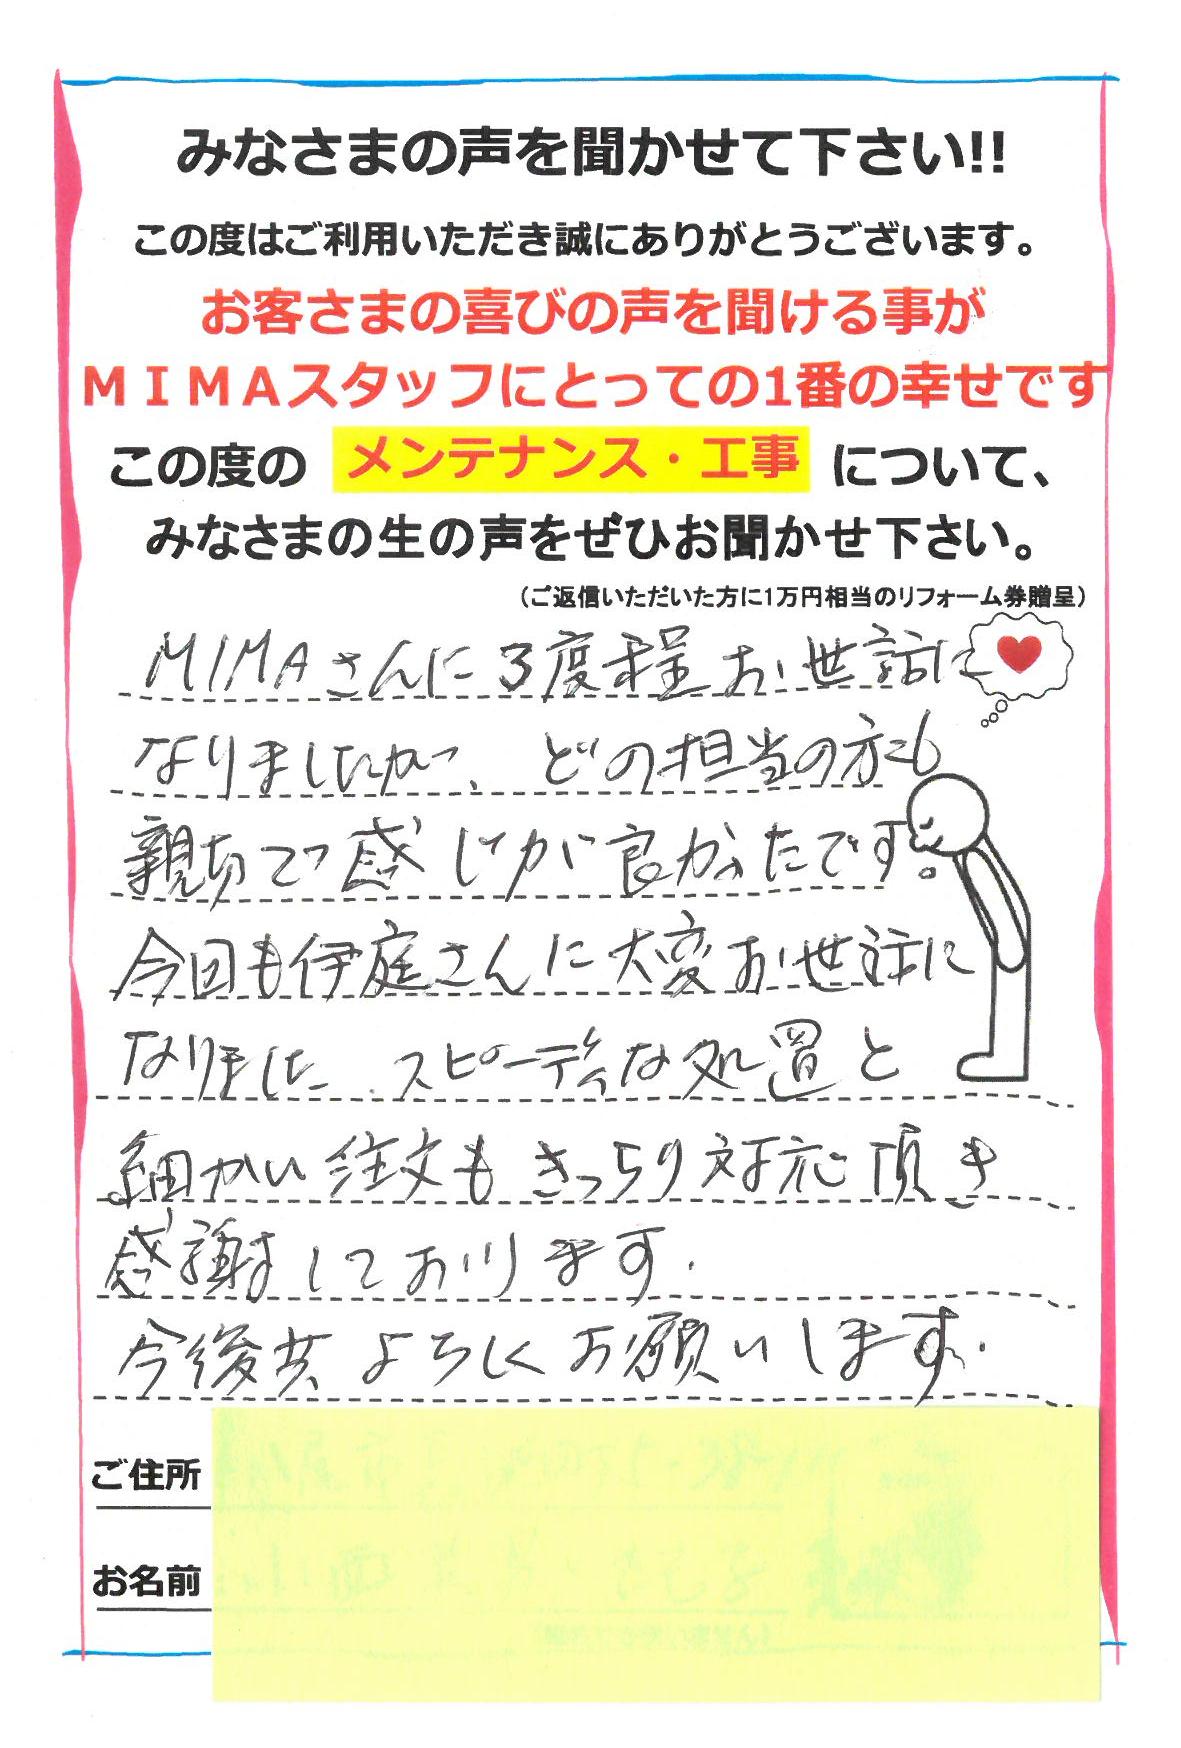 みなさまの声を聞かせて下さい!!
この度はご利用いただき誠にありがとうございます。
お客さまの喜びの声を聞ける事が
ＭＩＭＡスタッフにとっての1番の幸せです
この度の メンテナンス・工事 について、
みなさまの生の声をぜひお聞かせ下さい。
（ご返信いただいた方に1万円相当のリフォーム券贈呈）
MIMAさんに3度程お世話に
なりましたが、どの担当の方も
親切で感じが良かったです。
今回も伊庭さんに大変お世話に
なりました。スピーディな処置と
細かい注文もきっちり対応頂き
感謝しております.
今後共よろしくお願いします.
ご住所
お名前